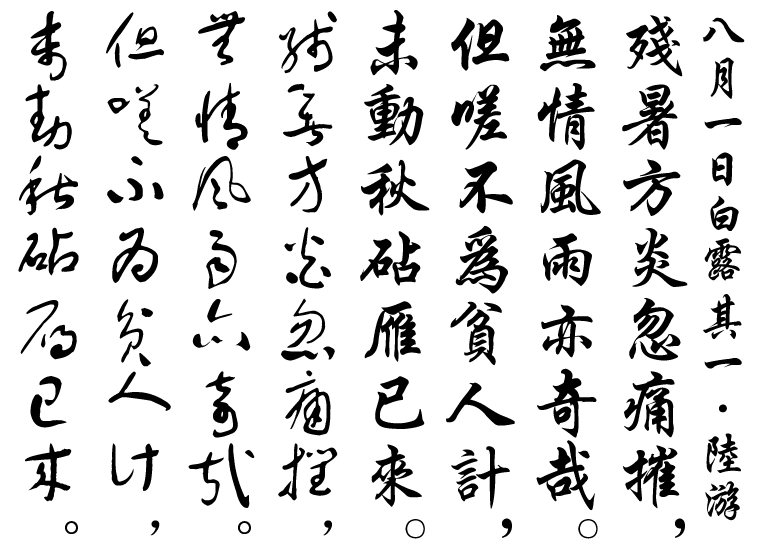 八月一日白露其一·陸游
殘暑方炎忽痛摧，
無情風雨亦奇哉。
但嗟不為貧人計，
未動秋砧雁已來。
殘暑方炎忽痛摧，
無情風雨亦奇哉。
但嗟不為貧人計，
未動秋砧雁已來。